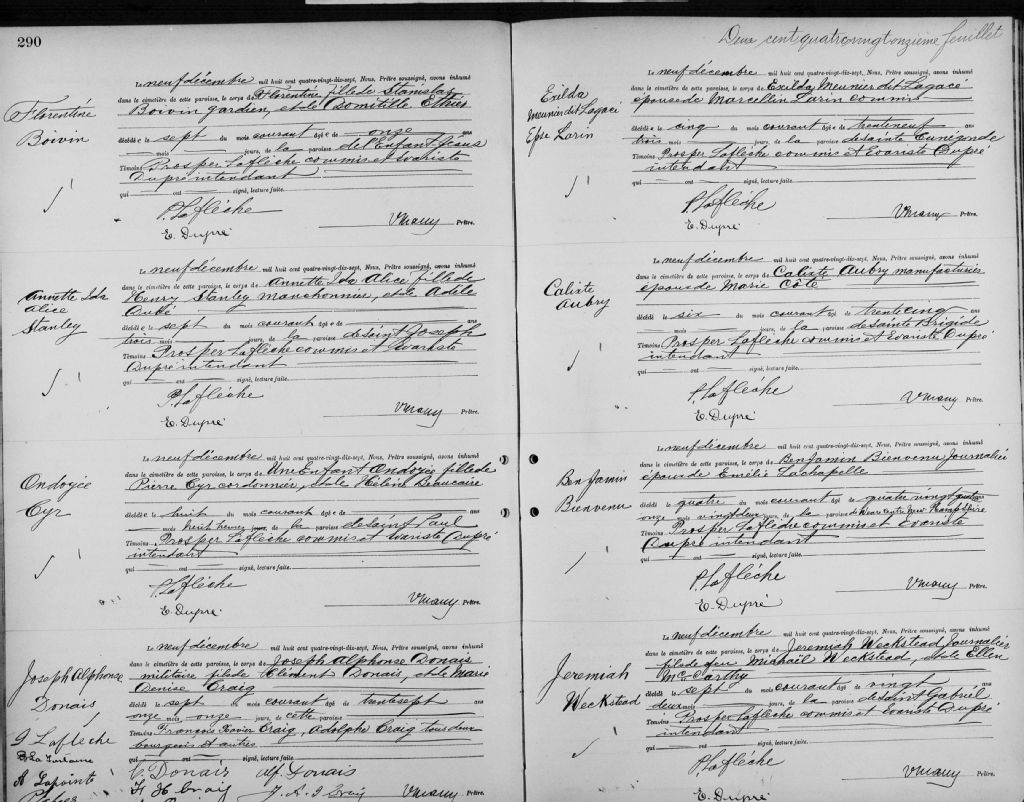 290
Florentine
Boivin
Le neuf décembre mil huit cent quatre-vingt-dix-sept, Nous, Prêtre soussigné, avons inhumé
dans le cimetière de cette paroisse, le corps de Florentine fille de Stanislas
Boivin gardien, et de
décédée le sept du mois courant âgée de onze ans
mois jours, de la paroisse de l'Enfant Jésus
Témoins Prosper Laflèche commis et Evariste
Dupré intendant
qui ont signé, lecture faite.
P. Laflèche
E. Dupré
Prêtre.
Annette Ida
Alice
Stanley
Le neuf décembre mil huit cent quatre-vingt-dix-sept, Nous, Prêtre soussigné, avons inhumé
dans le cimetière de cette paroisse, le corps de Annette Ida Alice fille de
Henry Stanley manchonnier, et de Adèle
Aubé
décédée le sept du mois courant âgée de ans
trois mois jours, de la paroisse de saint Joseph
Témoins Prosper Laflèche commis et Evariste
Dupré intendant
qui ont signé, lecture faite.
P. Laflèche
E. Dupré
Prêtre.
Ondoyée
Cyr
Le neuf décembre mil huit cent quatre-vingt-dix-sept, Nous, Prêtre soussigné, avons inhumé
dans le cimetière de cette paroisse, le corps de Une Enfant Ondoyée fille de
Pierre Cyr cordonnier, et de Hélène Beaucaire
décédée le huit du mois courant âgée de ans
mois huit heures jours, de la paroisse de saint Paul
Témoins Prosper Laflèche commis et Evariste Dupré
intendant
qui ont signé, lecture faite.
P. Laflèche
E. Dupré
Prêtre.
Joseph Alphonse
Donais
Le neuf décembre mil huit cent quatre-vingt-dix-sept, Nous, Prêtre soussigné, avons inhumé
dans le cimetière de cette paroisse, le corps de Joseph Alphonse Donais
militaire fils de Clément Donais, et de Marie
Denise Craig
décédé le sept du mois courant âgé de trente sept ans
onze mois onze jours, de cette paroisse
Témoins François Xavier Craig, Adolphe Craig tous deux
bourgeois et autres
qui ont signé, lecture faite.
Laflèche
A Lapointe
Donais Alf. Donais
Craig J. A. Craig
Prêtre.
Deux cent quatre vingt onzième feuillet
Exilda
Meunier dit Lagacé
Epse Larin
Le neuf décembre mil huit cent quatre-vingt-dix-sept, Nous, Prêtre soussigné, avons inhumé
dans le cimetière de cette paroisse, le corps de Exilda Meunier dit Lagacé
épouse de Marcellin Larin commis
décédée le cinq du mois courant âgée de trente neuf ans
trois mois jours, de la paroisse de sainte Cunégonde
Témoins Prosper Laflèche commis et Evariste Dupré
intendant
qui ont signé, lecture faite.
P. Laflèche
E. Dupré
Prêtre.
Calixte
Aubry
Le neuf décembre mil huit cent quatre-vingt-dix-sept, Nous, Prêtre soussigné, avons inhumé
dans le cimetière de cette paroisse, le corps de Calixte Aubry manufacturier
époux de Marie Côté
décédé le six du mois courant âgé de trente cinq ans
mois jours, de la paroisse de sainte Brigide
Témoins Prosper Laflèche commis et Evariste Dupré
intendant
qui ont signé, lecture faite.
P. Laflèche
E. Dupré
Prêtre.
Benjamin
Bienvenu
Le neuf décembre mil huit cent quatre-vingt-dix-sept, Nous, Prêtre soussigné, avons inhumé
dans le cimetière de cette paroisse, le corps de Benjamin Bienvenu Journalier
époux de Emélie Lachapelle
décédé le quatre du mois courant âgé de quatre vingt ans
onze mois vingt deux jours, de la paroisse de
Témoins Prosper Laflèche commis et Evariste
Dupré intendant
qui ont signé, lecture faite.
P. Laflèche
E. Dupré
Prêtre.
Jeremiah
Weckstead
Le neuf décembre mil huit cent quatre-vingt-dix-sept, Nous, Prêtre soussigné, avons inhumé
dans le cimetière de cette paroisse, le corps de Jeremiah Weckstead Journalier
fils de feu Michaël Weckstead, et de Ellen
McCarthy
décédé le sept du mois courant âgé de vingt ans
deux mois jours, de la paroisse de saint Gabriel
Témoins Prosper Laflèche commis et Evariste Dupré
intendant
qui ont signé, lecture faite.
P. Laflèche
E. Dupré
Prêtre.